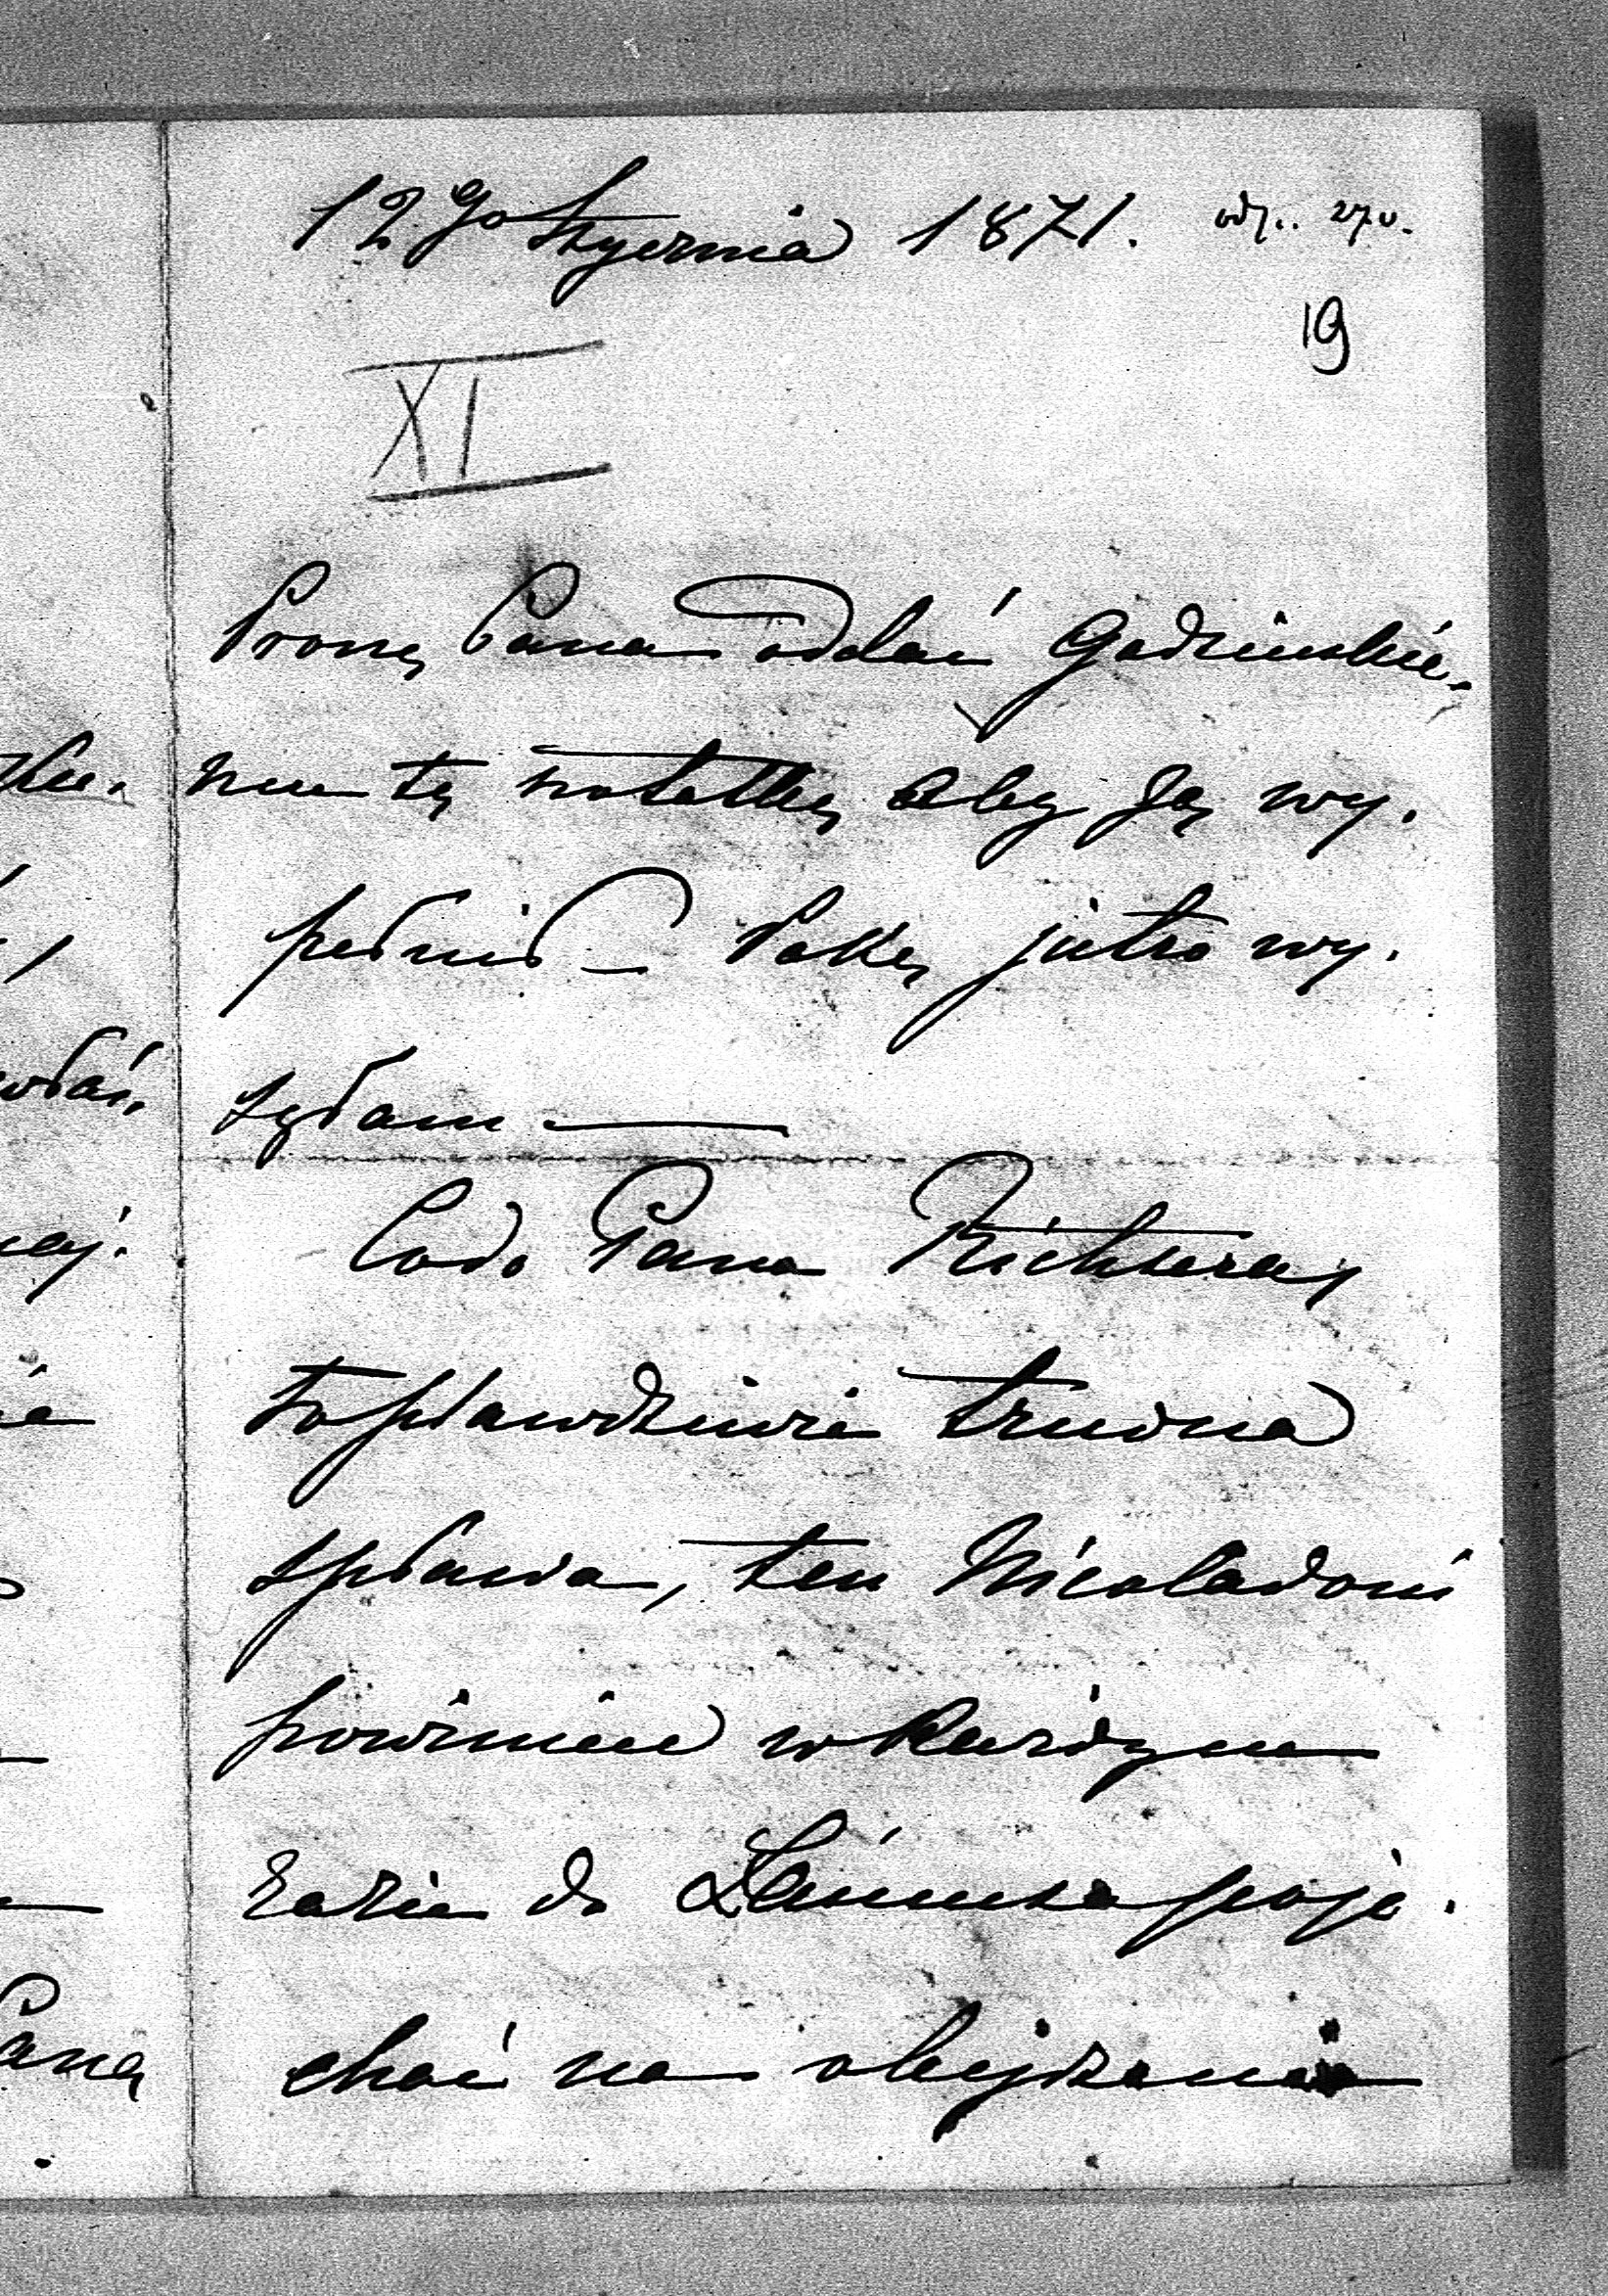 12go Stycznia 1871. odp. 27.
19
XI
Proszę Pana oddać Godzimskie-
mu tę notatkę aby ją wy-
pełnił — Pakę jutro wy-
syłam —
Co do Pana Richtera,
to prawdziwie trudna
sprawa, ten Nicoladoni
powinien w każdym
razie do Łańcuta poje-
chać na obejrzenie